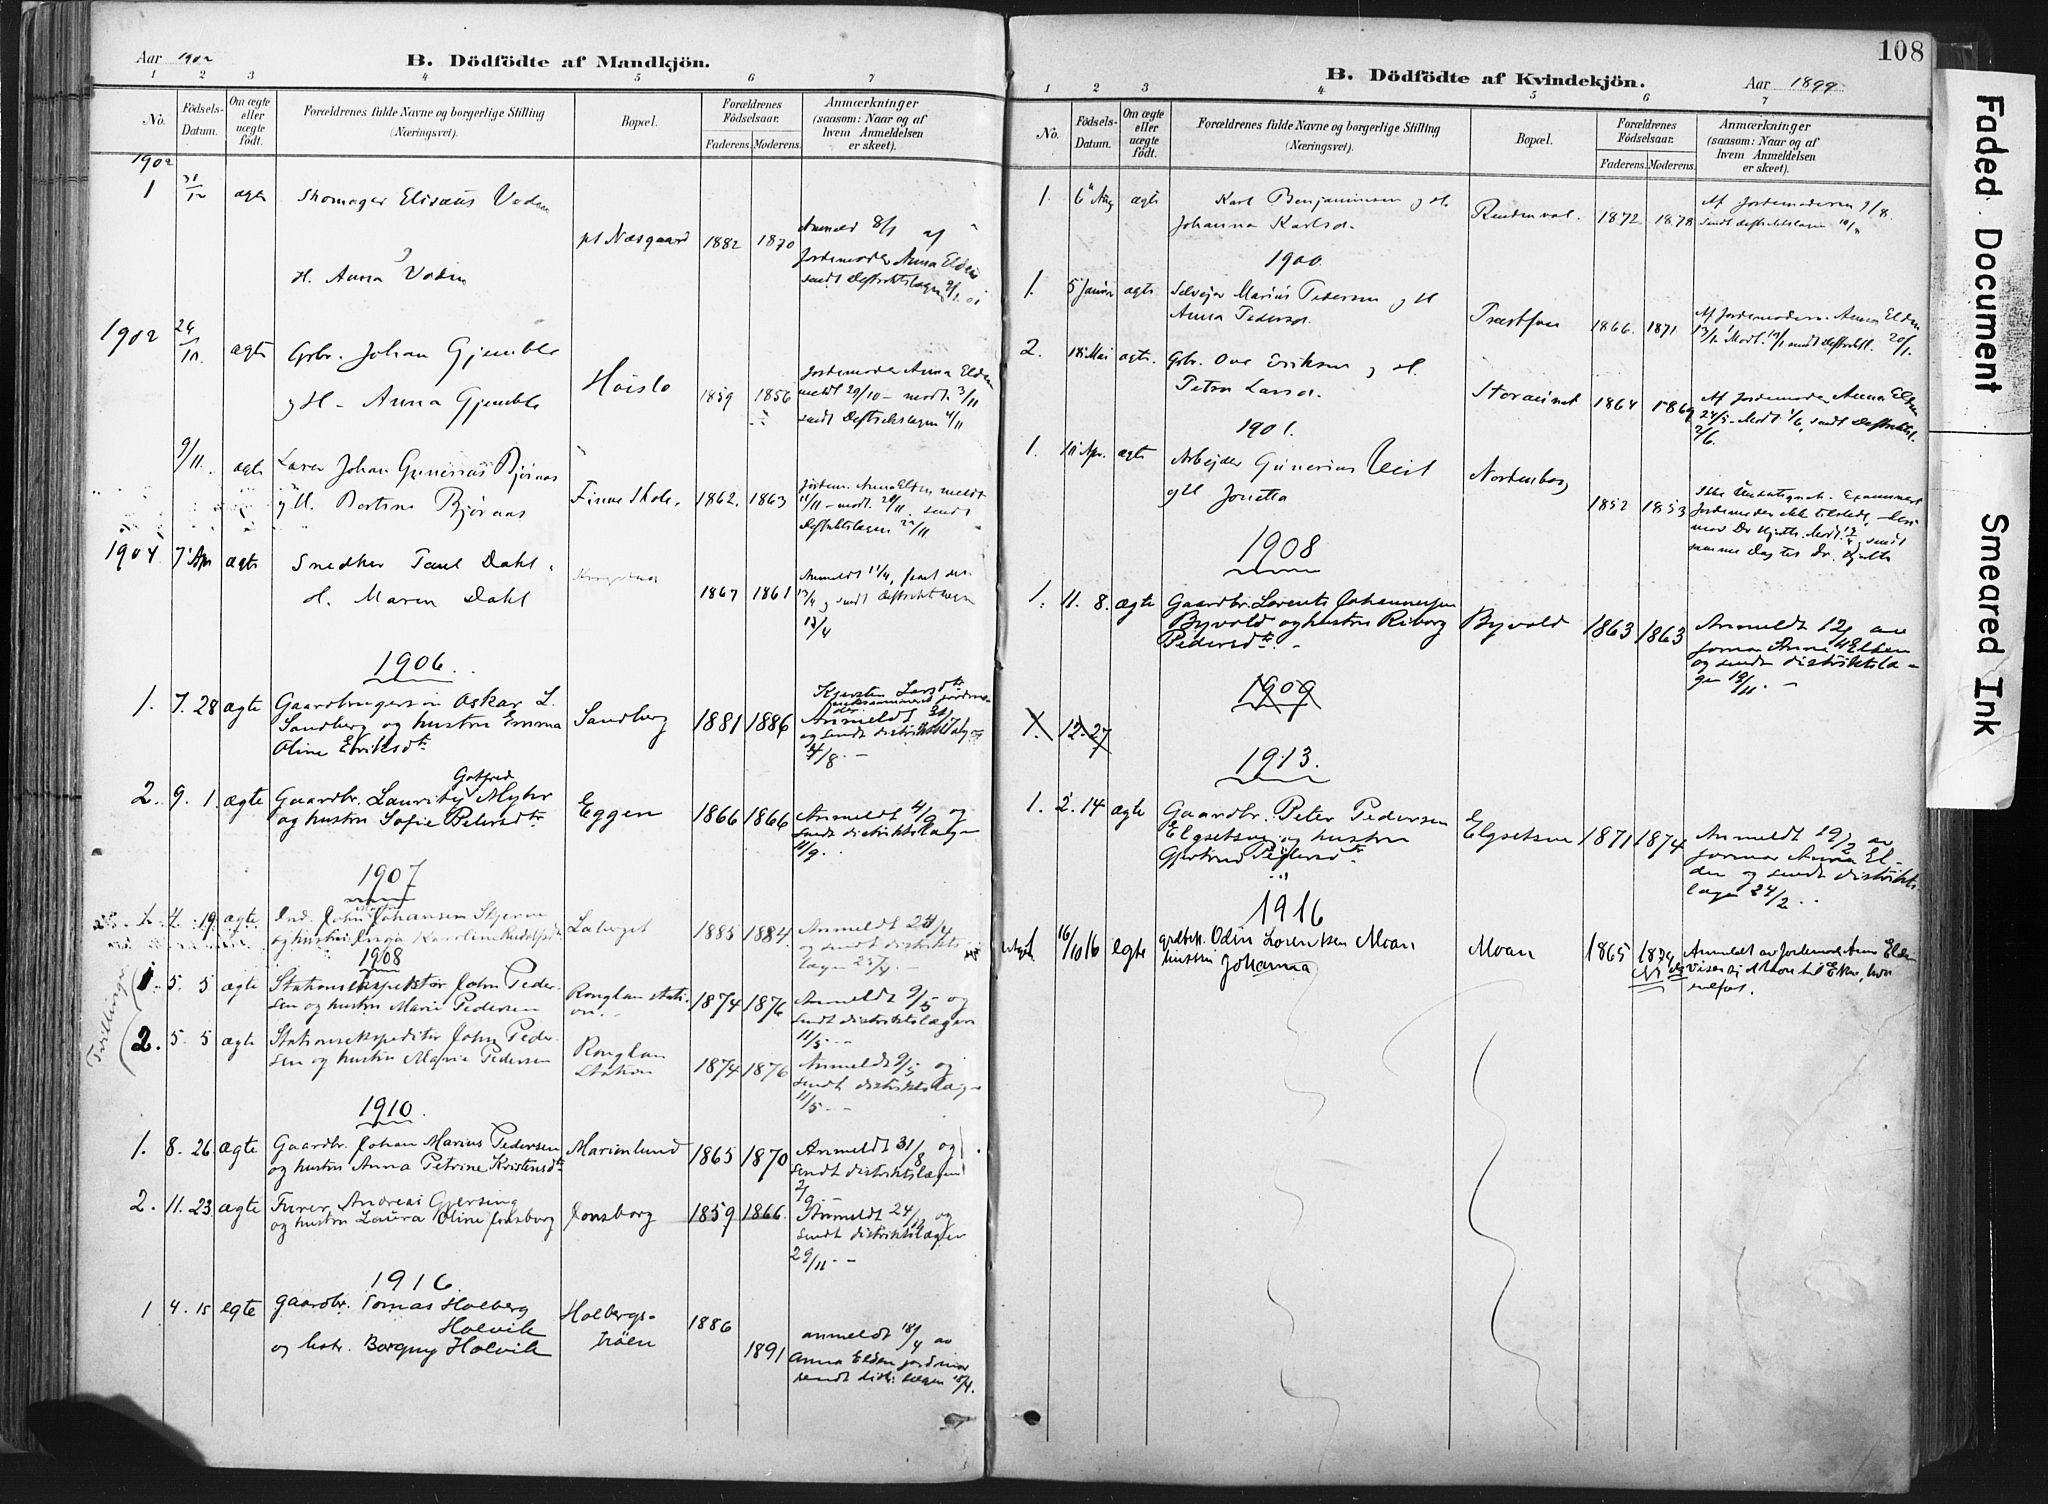 Aar 1902
B. Dödfödte af Mandkjön.
1 2 3 4 5 6 7
No.
Födsels-Datum.
Om ægte eller uægte födt.
Forældrenes fulde Navne og borgerlige Stilling (Næringsvei).
Bopæl.
Forældrenes Födselsaar.
Faderens. Moderens.
Anmærkninger (saasom: Naar og af hvem Anmeldelsen er skeet).
1902
1 31/12 ægte Skomager Elisæus Vodin
H. Anna Vodin
pt Næsgaard 1882 1870
Anmeld 8/1 af
Jordemoder Anna Elden
sendt Distriktslægen 9/1
1902 24/10 ægte Gbr. Johan Gjemble
og H. Anna Gjemble
Høislo 1859 1856
Jordemoder Anna Elden
meldt 29/10 - modt. 3/11
sendt Distriktslægen 4/11
9/11 ægte Lærer Johan Gunerius Björaas
og H. Bertine Björaas
Finne Skole. 1862. 1863
Jordem. Anna Elden meldt
11/11 - modt. 20/11 sendt
Distriktslægen 22/11
1904 7' Apr ægte Snedker Paul Dahl
H. Maren Dahl
1867 1861
Anmeldt 11/4,
og sendt Distriktslægen
13/4
1906.
1. 7. 28 ægte Gaardbrugers. Oskar L.
Sandberg og hustru Emma
Oline Eriksdtr
Sandberg 1881 1886
Kjersten Larsdtr
Anmeldt
og sendt distriktslægen
4/8. -
2. 9. 1. ægte Gaardbr. Lauritz Gotfred Myhr
og hustru Sofie Petersdtr
Eggen 1866 1866
Anmeldt 4/9 og
sendt distriktslægen
11/9.
1907
1. 4. 19. ægte Ind. John Martin Johansen Stjerne
og hustru Inga Karoline Rudolfsdtr
Laberget 1885 1884.
Anmeldt 24/4
og sendt distriktslægen
25/4. -
1908
Tvillinger
1. 5. 5 ægte Stationsekspeditør John Pedersen
og hustru Marie Pedersen
Ronglan station. 1874 1876
Anmeldt 9/5 og
sendt distriktslægen
11/5 - -
2. 5. 5 ægte Stationsekspeditør John Pedersen
og hustru Marie Pedersen
Ronglan Station 1874 1876
Anmeldt 9/5 og
sendt distriktslægen
11/5 - -
1910.
1. 8. 26. ægte Gaardbr. Johan Marius Pedersen
og hustru Anna Petrine Kristensdtr
Marienlund 1865 1870
Anmeldt 31/8 og
sendt distriktslægen
2/9 -
2. 11. 23. ægte Furer Andreas Gjersing
og hustru Laura Oline Jonsborg
Jonsborg 1859 1866.
Anmeldt 24/11 og
sendt distriktslægen
29/11 - -
1916.
1 4. 15 egte gaardbr. Tomas Holberg
Holvik
og hstr. Borgny Holvik
Holbergs-trøen 1886 1891
anmeldt 18/4 av
Anna Elden jordmor
sendt distr. lægen 18/4.
108
B. Dödfödte af Kvindekjön.
Aar 1899
1 2 3 4 5 6 7
No.
Födsels-Datum.
Om ægte eller uægte födt.
Forældrenes fulde Navne og borgerlige Stilling (Næringsvei).
Bopæl.
Forældrenes Födselsaar.
Faderens. Moderens.
Anmærkninger (saasom: Naar og af hvem Anmeldelsen er skeet).
1. 6 Aug ægte Karl Benjaminsen og H.
Johanna Karlsd.
1872 1878
Af Jordemoderen 9/8.
sendt Distriktslægen 10/8
1900.
1. 5 Januar ægte Selvejer Marius Pedersen og H
Anna Pedersd.
1866. 1871.
Af Jordemoderen Anna Elden
13/1. Modt. 19/1 sendt Distriktsl. 20/1.
2. 18 Mai ægte. Gbr. Ove Eriksen og H.
Petra Larsd.
1864 1869
Af Jordemoder Anna Elden
24/5 - Modt 1/6, sendt Distriktsl.
2/6.
1901.
1. 11 Apr. ægte Arbejder Gunerius Veit
og H Jonetta
Nordenborg 1852 1853
Jordemoder ikke tilstede
1908
1. 11. 8. ægte Gaardbr. Lorents Johannesen
Byvold og hustru Riborg
Pedersdtr. -
Byvold 1863 1863
Anmeldt 12/11 av
jormor Anna Elden
og sendt distriktslægen
18/11. -
1909
1. 12. 27
1913.
1. 2. 14 ægte Gaardbr. Peter Pedersen
Elgsetsve og hustru
Gjertrud Pedersdtr.
Elgsetsve 1871 1874
Anmeldt 19/2 av
jormor Anna Elden
og sendt distriktslægen
24/2 - -
1916
1 16/10 16 egte grdbr. Odin Lorentsen Moan
hustru Johanna
Moan 1865 1874
Anmeldt av Jordemor Anna Elden
Faded Document
Smeared Ink